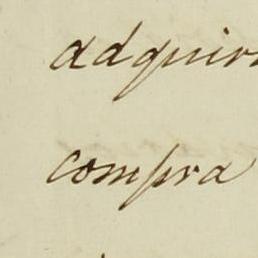 adquir
compra